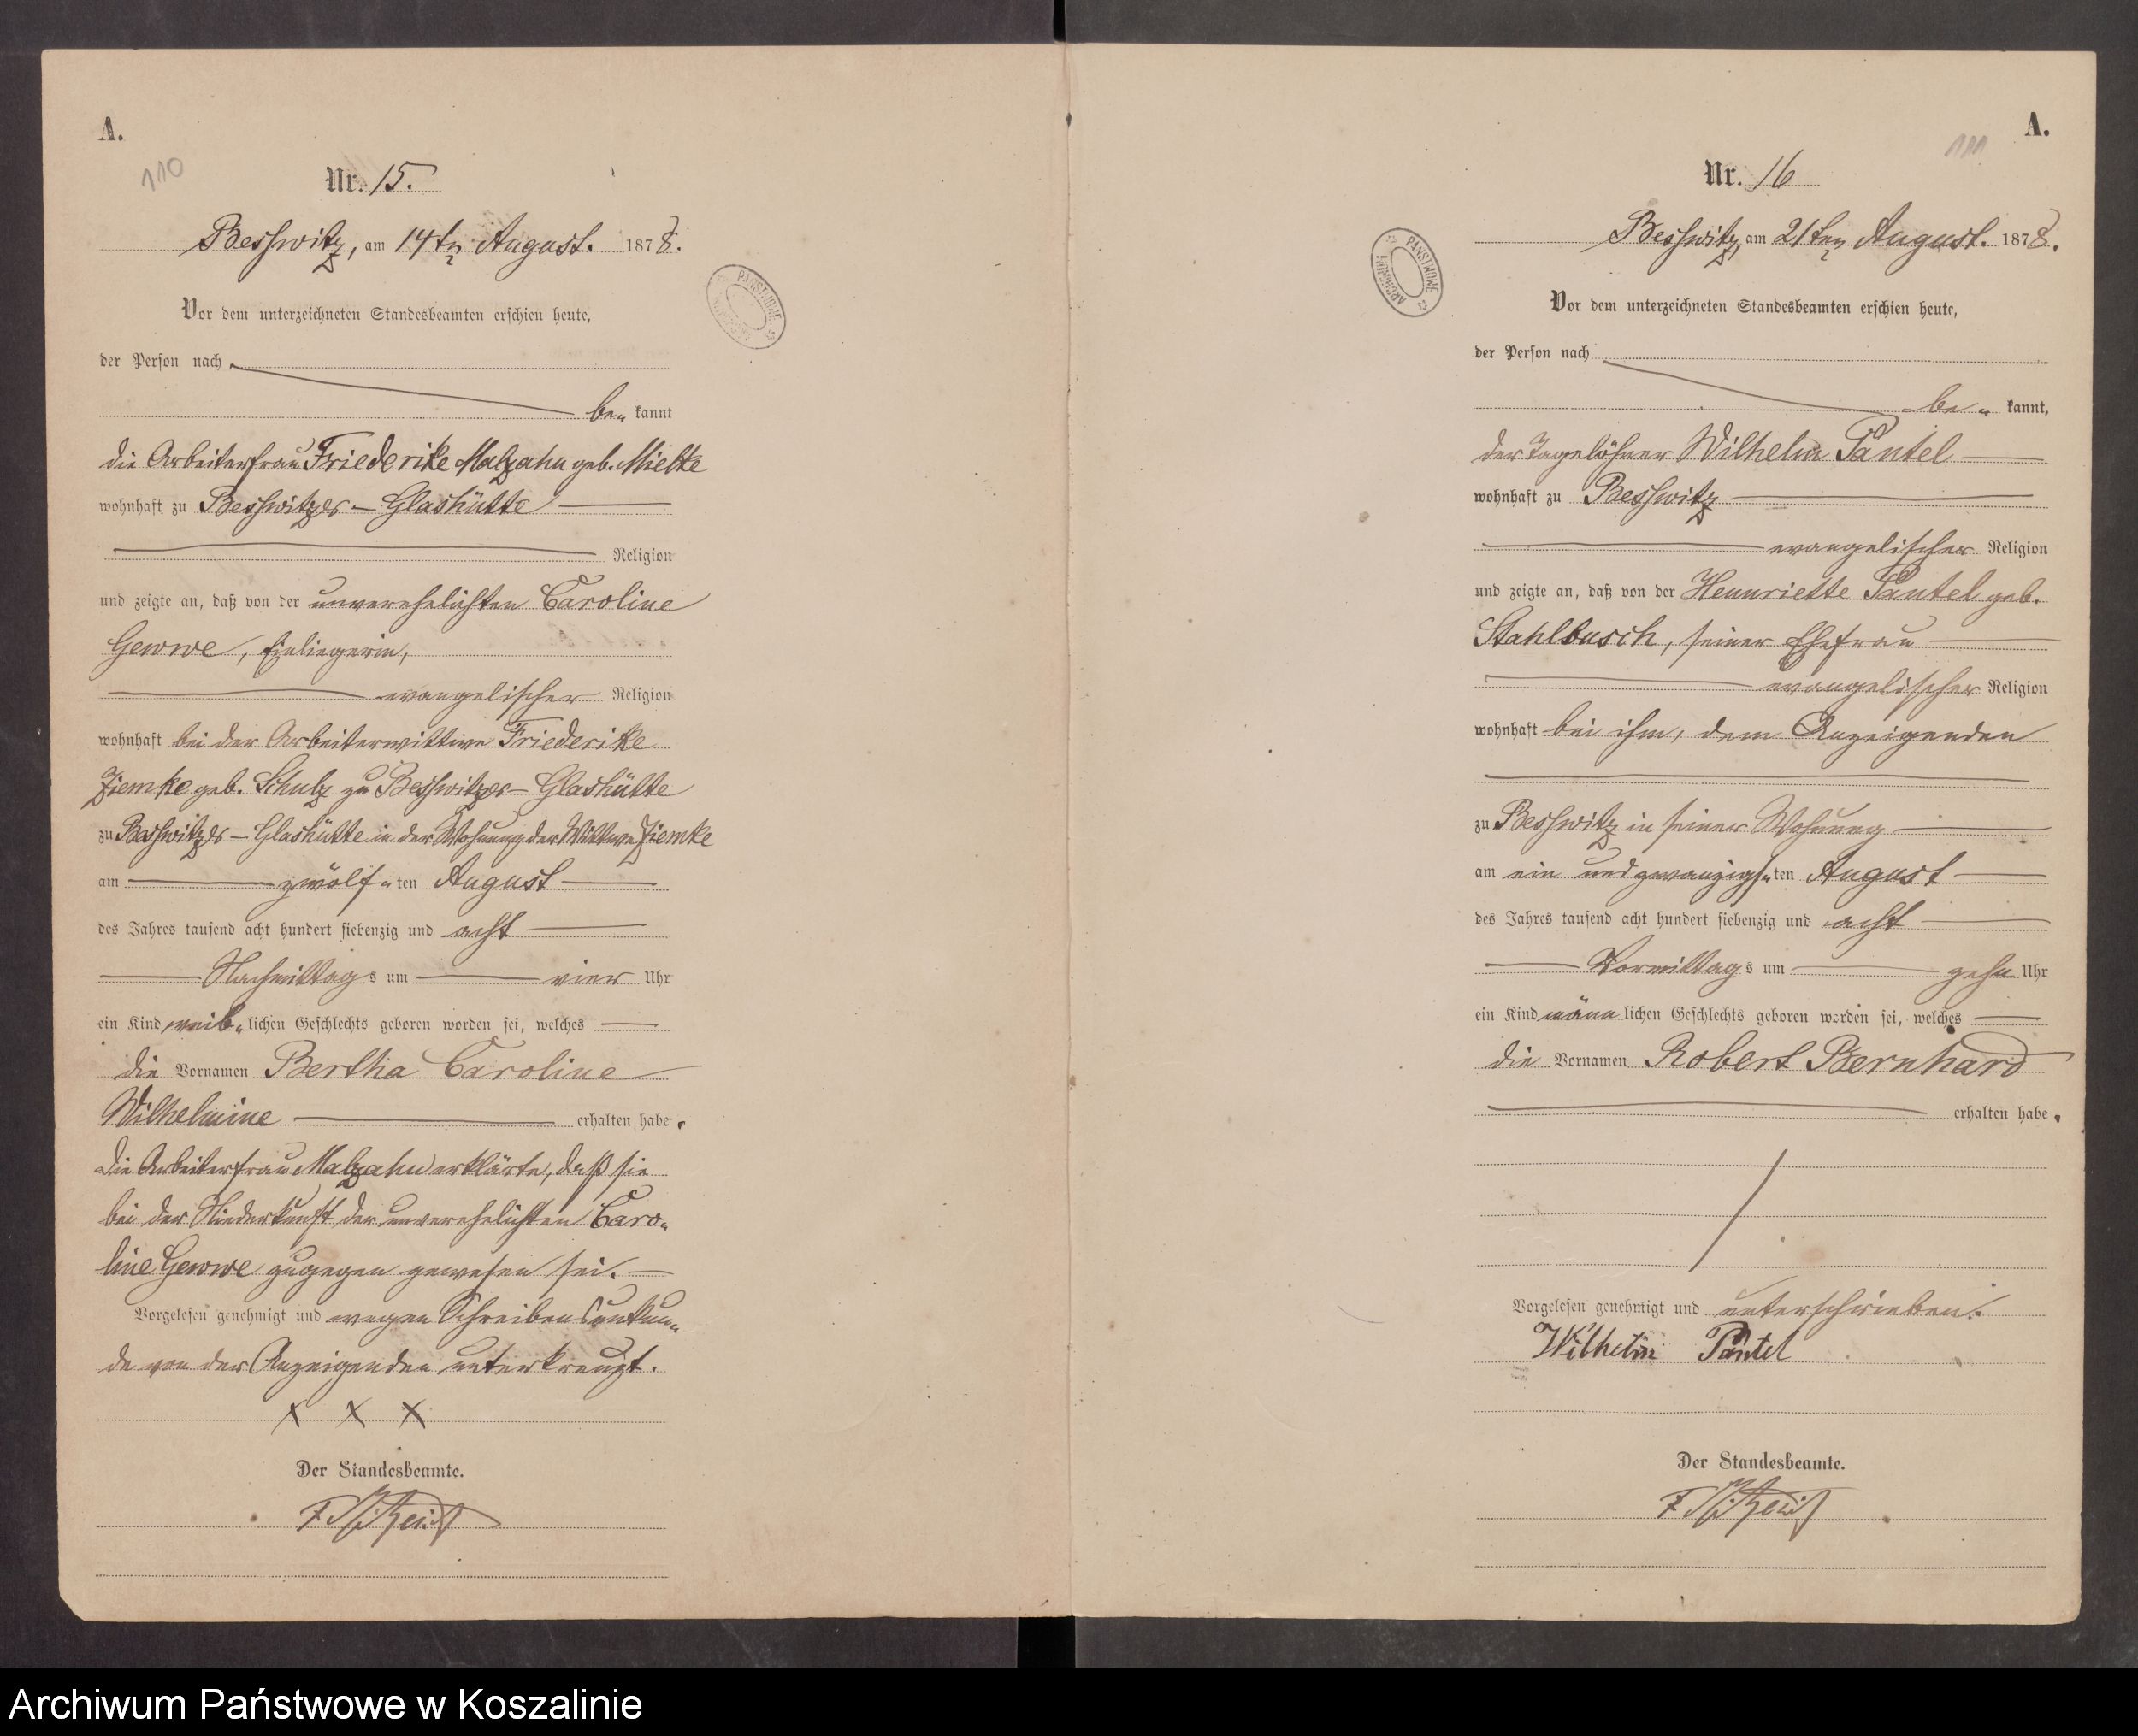 A.
110
Nr. 15.
Besswitz, am 14ten August. 1878.
Vor dem unterzeichneten Standesbeamten erschien heute,
der Person nach
be„ kannt
die Arbeiterfrau Friederike Malzahn geb. Mielke
wohnhaft zu Besswitzer-Glashütte
Religion
und zeigte an, daß von der unverehelichten Caroline
Gewwe, Einliegerin,
evangelischer Religion
wohnhaft bei der Arbeiterwittwe Friederike
Ziemke geb. Schulz zu Besswitzer-Glashütte
zu Besswitzer-Glashütte in der Wohnung der Wittwe Ziemke
am zwölf„ten August
des Jahres tausend acht hundert siebenzig und acht
Nachmittags um vier Uhr
ein Kind weib„lichen Geschlechts geboren worden sei, welches
die Vornamen Bertha Caroline
Wilhelmine erhalten habe.
Die Arbeiterfrau Malzahn erklärte, daß sie
bei der Niederkunft der unverehelichten Caro„
line Gewwe zugegen gewesen sei.
Vorgelesen genehmigt und wegen Schreibensunkun„
de von der Anzeigenden unterkreuzt.
x x x
Der Standesbeamte.
A.
111
Nr. 16
Besswitz, am 21ten August. 1878.
PANSTWOWE ARCHIWUM
Vor dem unterzeichneten Standesbeamten erschien heute,
der Person nach
be„ kannt,
der Tagelöhner Wilhelm Pantel
wohnhaft zu Besswitz
evangelischer Religion
und zeigte an, daß von der Hennriette Pantel geb.
Stahlbusch, seiner Ehefrau
evangelischer Religion
wohnhaft bei ihm, dem Anzeigenden
zu Besswitz in seiner Wohnung
am ein und zwanzigs„ten August
des Jahres tausend acht hundert siebenzig und acht
Vormittags um zehn Uhr
ein Kind männlichen Geschlechts geboren worden sei, welches
die Vornamen Robert Bernhard
erhalten habe.
Vorgelesen genehmigt und unterschrieben.
Wilhelm Pantel
Der Standesbeamte.
Archiwum Państwowe w Koszalinie